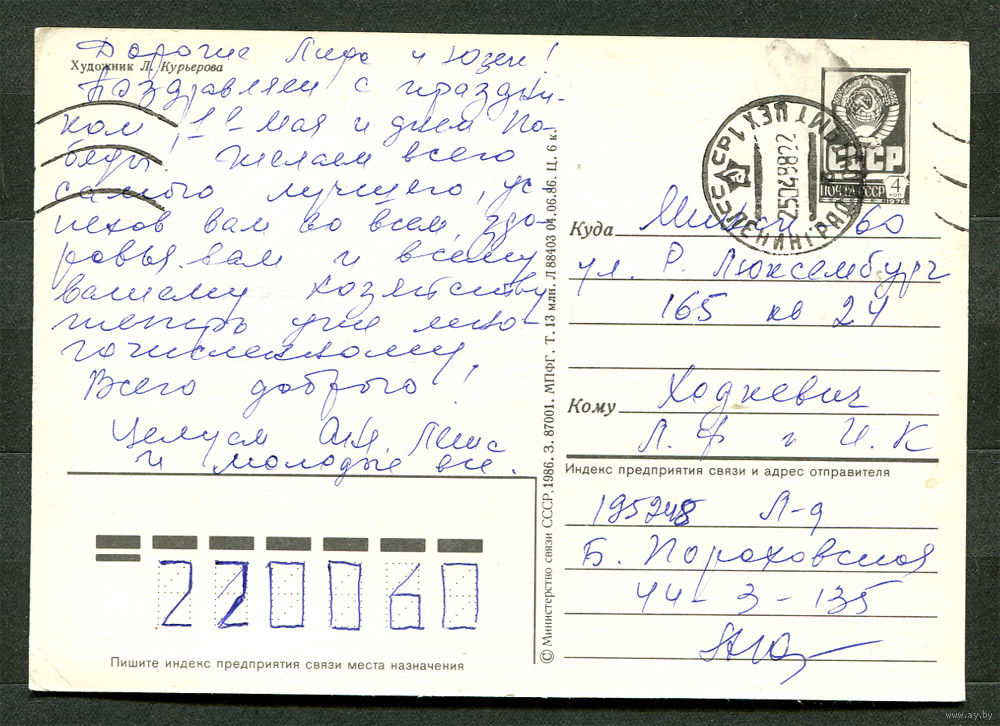 Дорогие Лида и Юзеи!
Художник Л. Курьерова
Поздравляем с праздни-
ком 1го мая и днем По-
беды! Желаем всего
самого лучшего, ус-
пехов вам во всем, здо-
ровья вам и всему
вашему хозяйству
теперь уже мно-
гочисленному!
Всего доброго!
Целуем
и молодые все.
220060
Пишите индекс предприятия связи места назначения
© Министерство связи СССР, 1986. З. 87001. МПФГ. Т. 13 млн. Л 88403 04.06.86. Ц. 6 к.
СССР
ПОЧТА СССР 4 КОП
1976
ЛЕНИНГРАД
Куда Минск 60
ул. Р. Люксембург
165 кв 24
Кому Ходкевич
Л. Ф и И. К
Индекс предприятия связи и адрес отправителя
195248 Л-д
Б. Пороховская
44-3-135
www.ay.by